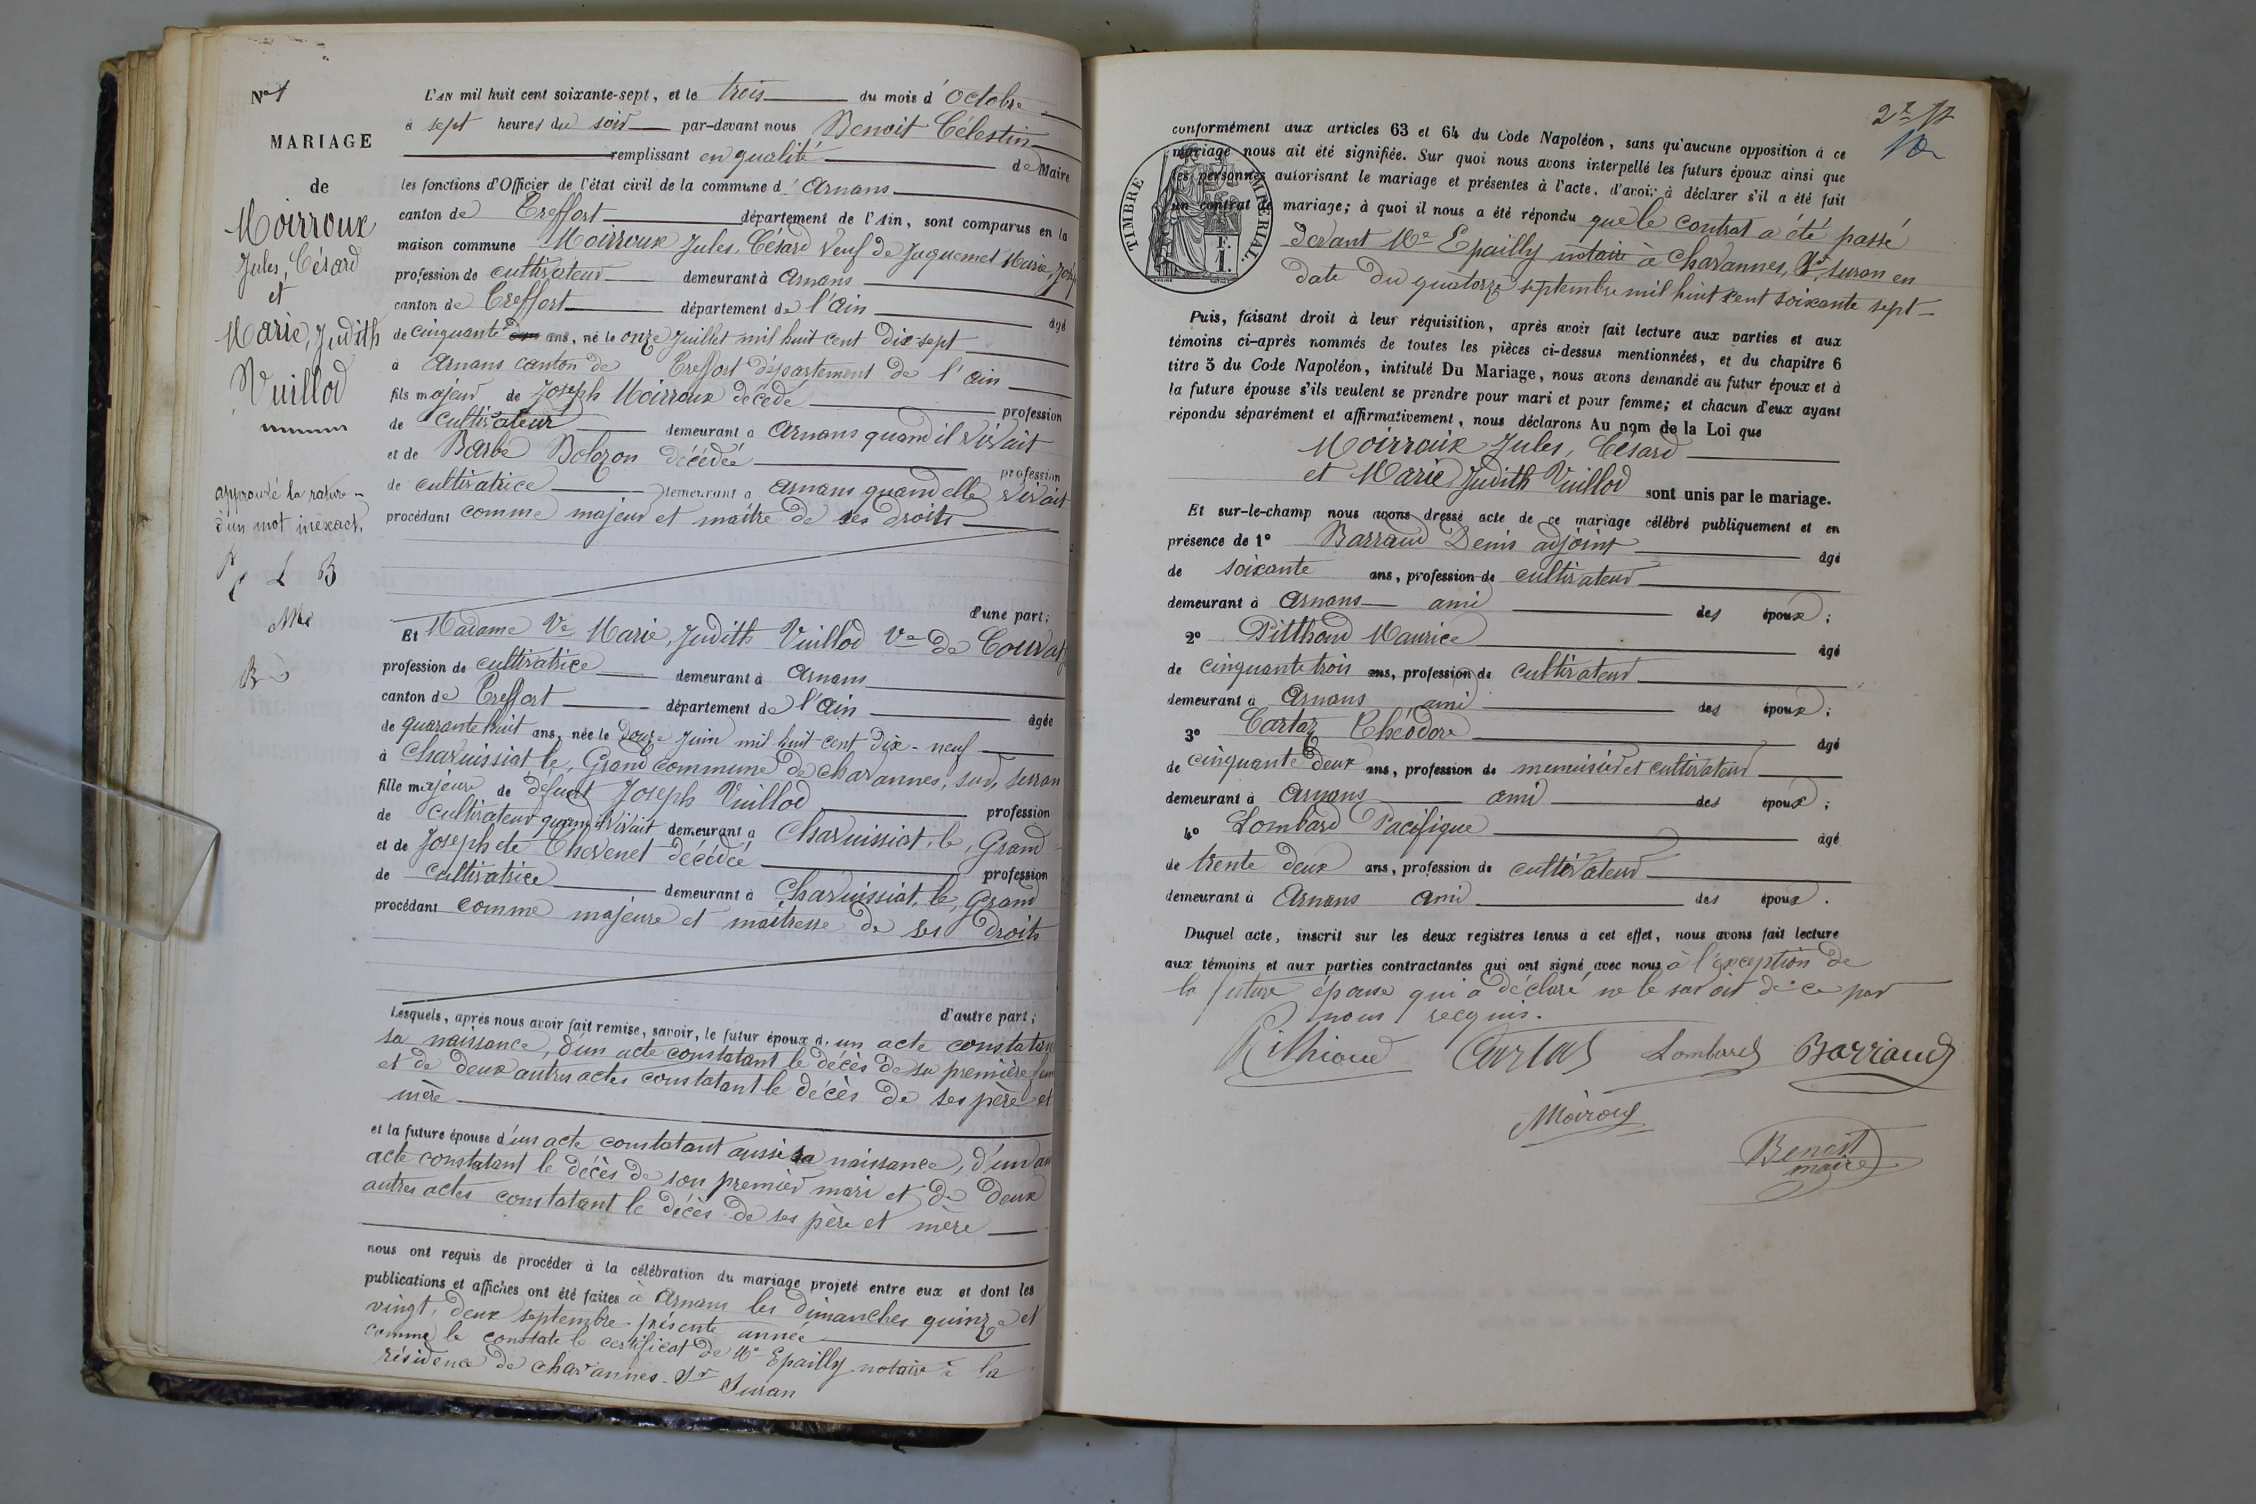 N° 1
MARIAGE
de
Moirroux
Jules, Césard
et
Marie, Judith
Vuillod
approuvé la rature
d'un mot inexact,
L B
L'AN mil huit cent soixante-sept, et le trois du mois d'Octobre
à sept heures du soir par-devant nous Benoit Célestin
remplissant en qualité de Maire
les fonctions d'Officier de l'état civil de la commune d'Arnans
canton de Treffort département de l'Ain, sont comparus en la
maison commune Moirroux Jules, Césard Veuf de Juquemet Marie, Josep
profession de cultivateur demeurant à Arnans
canton de Treffort département de l'ain âgé
de cinquante ans, né le onze Juillet mil huit cent Dix-sept
à Arnans canton de Treffort département de l'ain
fils majeur de Joseph Moirroux décédé profession
de cultivateur demeurant à Arnans quand il vivait
et de Barbe Bolozon décédée profession
de cultivatrice demeurant à Arnans quand elle vivait
procédant comme majeur et maître de ses droits
d'une part;
Et Madame Ve Marie, Judith Vuillod Ve de Couvat
profession de cultivatrice demeurant à Arnans
canton de Treffort département de l'Ain âgée
de quarante huit ans, née le douze Juin mil huit cent dix-neuf
à Charuissiat le, Grand commune de chavannes, sur, suran
fille majeure de défunt Joseph Vuillod profession
de cultivateur quand il vivait demeurant à Charuissiat, le, Grand
et de Josephete Chevenet décédée profession
de cultivatrice demeurant à Charuissiat, le, Grand
procédant comme majeure et maitresse de ses droits
d'autre part;
Lesquels, après nous avoir fait remise, savoir, le futur époux d'un acte constatan
sa naissance, d'un acte constatant le décès de sa première fem
et de deux autres actes constatant le décès de ses père et
mère
et la future épouse d'un acte constatant aussi sa naissance, d'un au
acte constatant le décès de son premier mari et de deux
autres actes constatant le décès de ses père et mère
nous ont requis de procéder à la célébration du mariage projeté entre eux et dont les
publications et affiches ont été faites à Arnans les dimanches quinze et
vingt, deux septembre présente année
comme le constate le certificat de Me Epailly notaire à la
résidence de chavannes-Sr Suran
TIMBRE IMPÉRIAL.
E. I.
conformément aux articles 63 et 64 du Code Napoléon, sans qu'aucune opposition à ce
mariage nous ait été signifiée. Sur quoi nous avons interpellé les futurs époux ainsi que
les personnes autorisant le mariage et présentes à l'acte, d'avoir à déclarer s'il a été fait
un contrat de mariage; à quoi il nous a été répondu que le contrat a été passé
devant Me Epailly notaire à Chavannes, Sr, suran en
date du quatorze septembre mil huit cent soixante sept
Puis, faisant droit à leur réquisition, après avoir fait lecture aux parties et aux
témoins ci-après nommés de toutes les pièces ci-dessus mentionnées, et du chapitre 6
titre 5 du Code Napoléon, intitulé Du Mariage, nous avons demandé au futur époux et à
la future épouse s'ils veulent se prendre pour mari et pour femme; et chacun d'eux ayant
répondu séparément et affirmativement, nous déclarons Au nom de la Loi que
Moirroux Jules, Césard
et Marie, Judith Vuillod sont unis par le mariage.
Et sur-le-champ nous avons dressé acte de ce mariage célébré publiquement et en
présence de 1° Barraud Denis adjoint âgé
de soixante ans, profession de cultivateur
demeurant à Arnans ami des époux;
2° Pitthoud Maurice âgé
de cinquante trois ans, profession de cultivateur
demeurant à Arnans ami des époux;
3° Cartaz Théodore âgé
de cinquante deux ans, profession de menuisier et cultivateur
demeurant à Arnans ami des époux;
4° Lombard Pacifique âgé
de trente deux ans, profession de cultivateur
demeurant à Arnans ami des époux.
Duquel acte, inscrit sur les deux registres tenus à cet effet, nous avons fait lecture
aux témoins et aux parties contractantes qui ont signé avec nous à l'exception de
la future épouse qui a déclaré ne le savoir de ce par
nous requis.
Pithioud Cartas Lombard Barraud
Moiroux
Benoit
maire